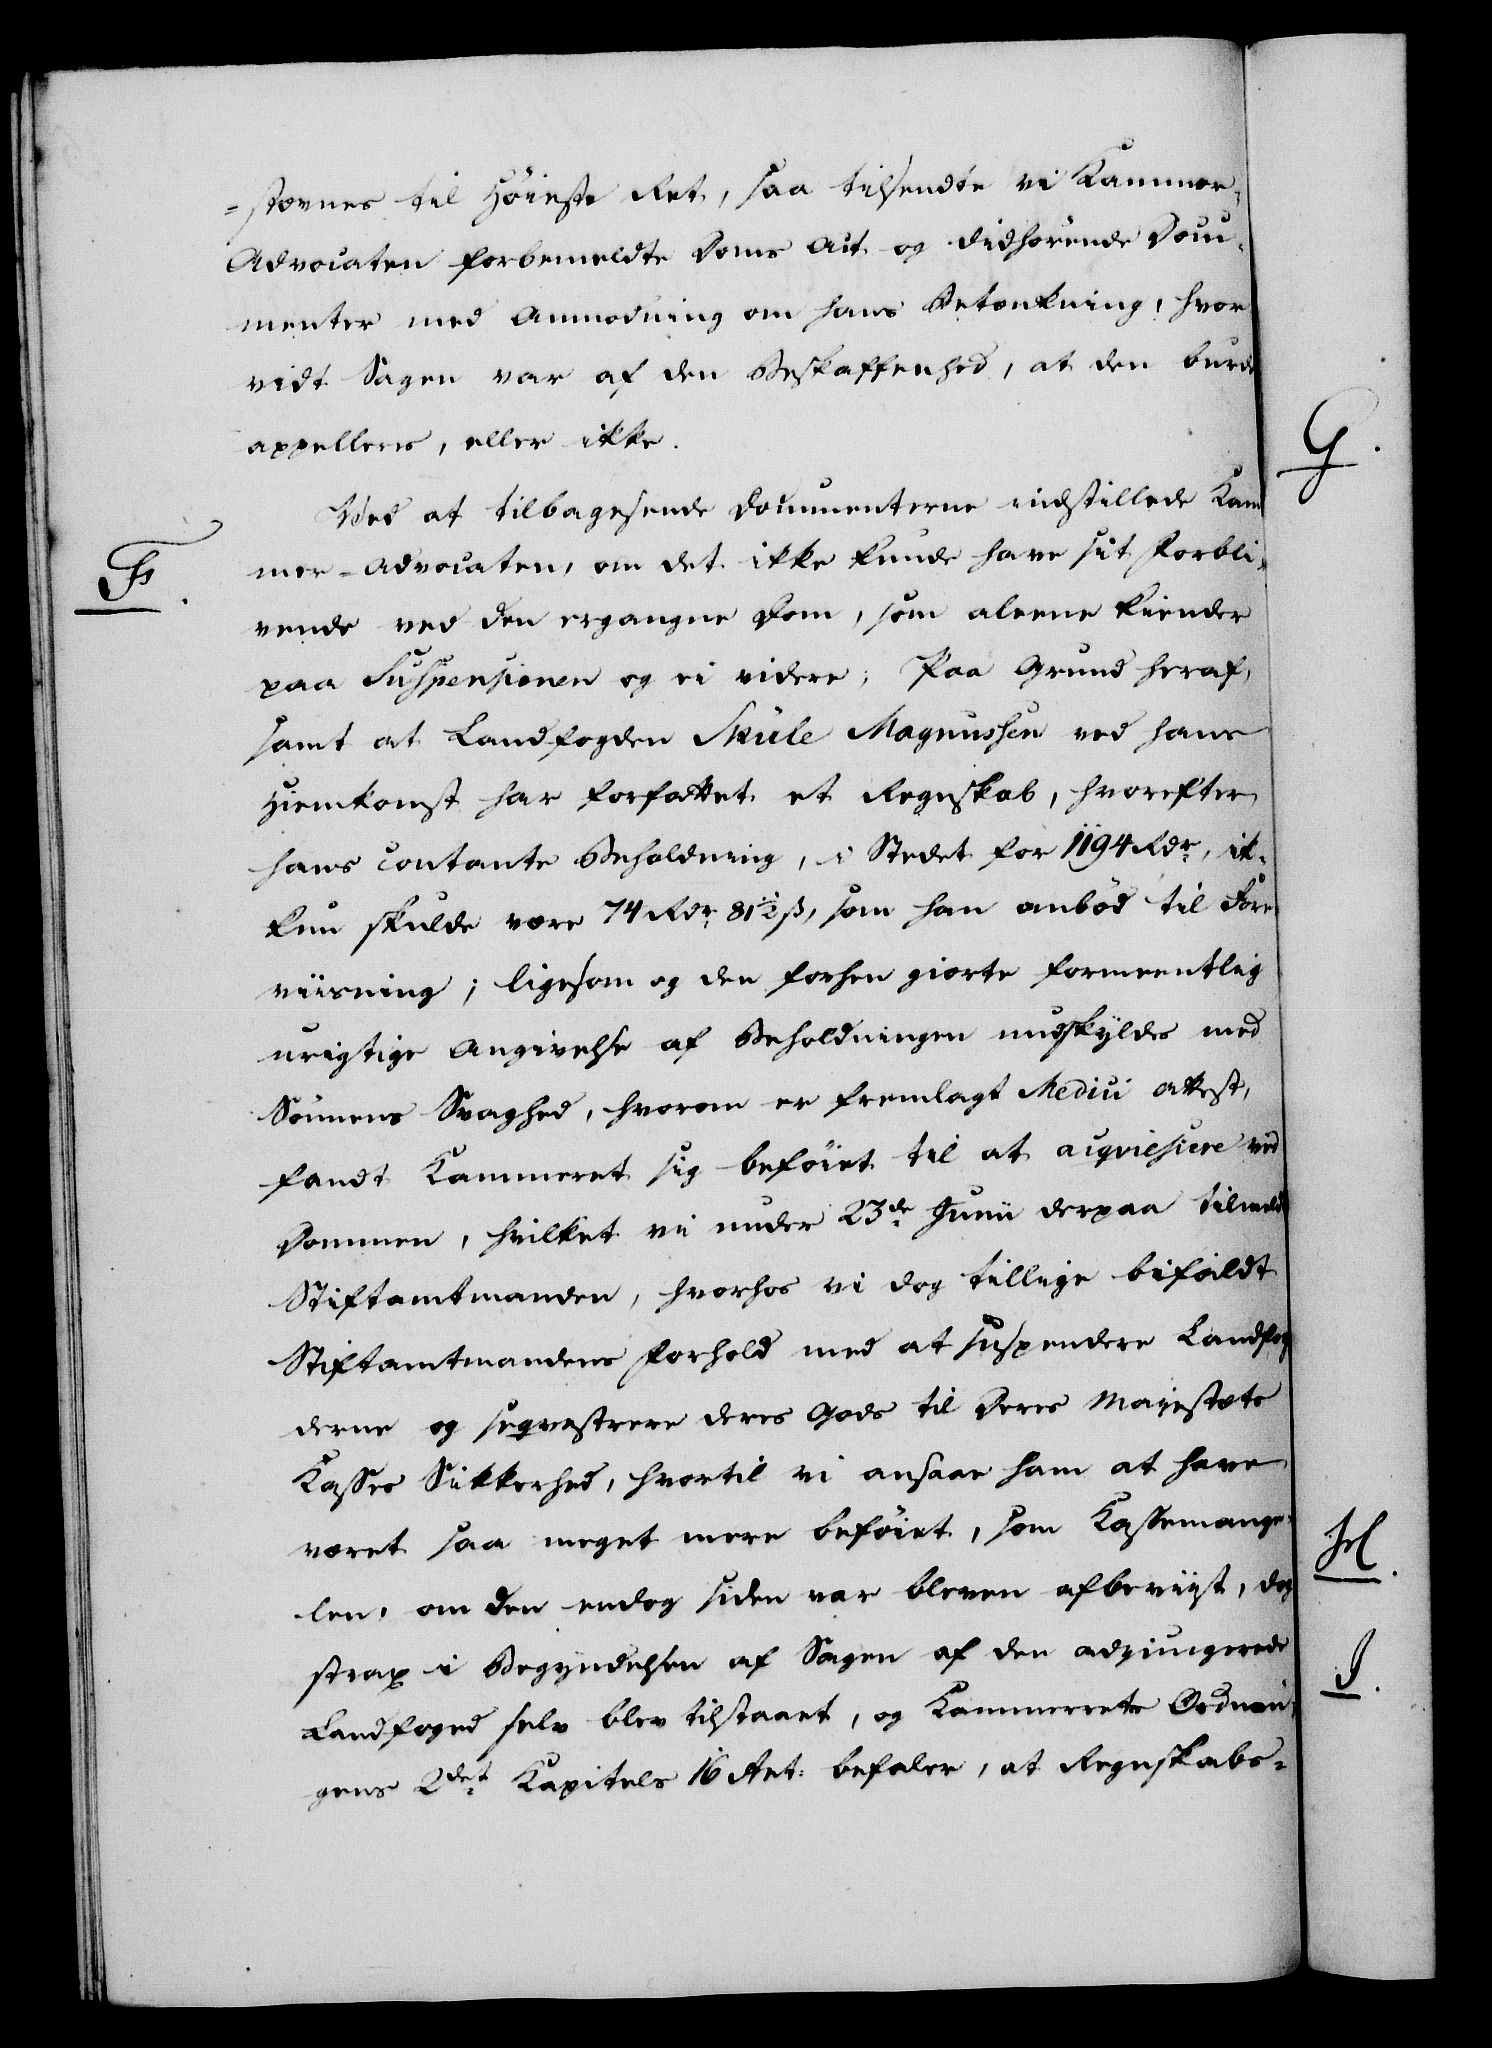 =stævnes til Höieste Ret, saa tilsendte vi Kammer-
Advocaten forbemeldte Doms Act og didhörende Docu-
menter med Anmodning om hans Betænkning, hvor-
vidt Sagen var af den Beskaffenhed, at den burde
appelleres, eller ikke.
Ved at tilbagesende Documenterne indstillede Kam
F. mer-Advocaten, om det ikke kunde have sit Forbli-
vende ved den ergangne Dom, som aleene kiender
paa Suspensionen og ei videre; Paa Grund heraf,
samt at Landfogden Skule Magnussen ved hans
Hiemkomst har forfattet et Regnskab, hvorefter
hans contante Beholdning, i Stedet for 1194 Rdr, ik-
kun skulde være 74 Rdr 81½ ß, som han anböd til Fore
viisning; ligesom og den forhen giorte formeentlig
urigtige Angivelse af Beholdningen undskyldes med
Sönnens Svaghed, hvorom er fremlagt Medici Attest,
fandt Kammeret sig beföiet til at acqviescere ved
Dommen, hvilket vi under 23de Junii derpaa tilmeldte
Stiftamtmanden, hvorhos vi dog tillige bifaldt
Stiftamtmandens Forhold med at suspendere Landfog
derne og seqvestrere deres Gods til Deres Majestæts
Kasses Sikkerhed, hvortil vi ansaae ham at have
været saa meget mere beföiet, som Kassemange-
len, om den endog siden var bleven afbeviist, dog
strax i Begyndelsen af Sagen af den adjungerede
Landfoged selv blev tilstaaet, og Kammerets Ordnin-
gens 2det Kapitels 16 Art: befaler, at Regnskabs-
G.
H.
I.